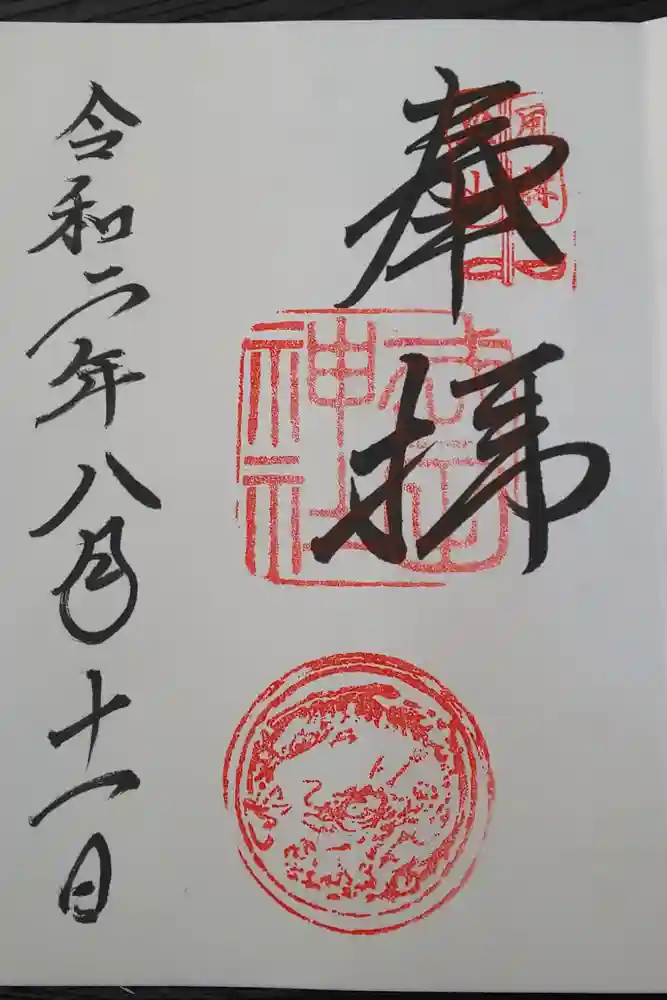 奉拝
神社
令和二年八月十一日